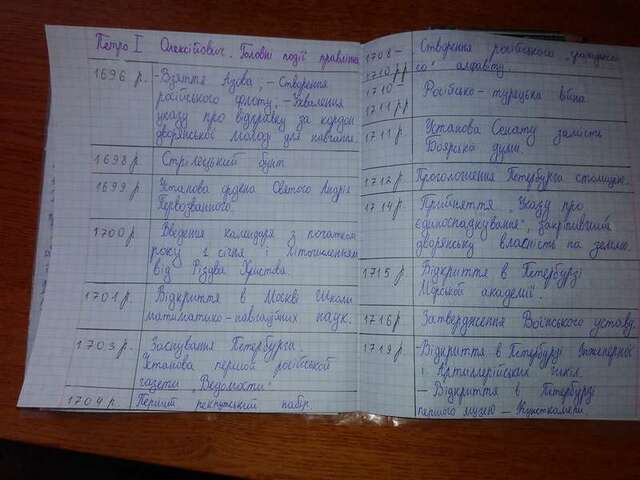 Петро I Олексійович. Головні події правління
1696 р. - Взяття Азова; - Створення
російського флоту; - Ухвалення
указу про відправку за кордон
дворянської молоді для навчання.
1698 р. Стрілецький бунт
1699 р. Установа ордена Святого Андрія
Первозванного.
1700 р. Введення календаря з початком
року 1 січня і літочисленням
від Різдва Христова
1701 р. Відкриття в Москві Школи
математико-навігаційних наук.
1703 р. Заснування Петербурга.
Установа першої російської
газети „Ведомости"
1704 р. Перший рекрутський набір
1708 - 1710 рр Створення російського громадянсько
го алфавіту.
1710 - 1711 рр Російсько-турецька війна
1711 р. Установа Сенату замість
Боярської думи.
1712 р. Проголошення Петербурга столицею.
1714 р. Прийняття „Указу про
єдиноспадкування", закріпивший
дворянську власність на землю.
1715 р Відкриття в Петербурзі
Морской академії.
1716 р. Затвердження Воїнського уставу
1719 р. - Відкриття в Петербурзі Інженерної
і Артиллерійських шкіл
- Відкриття в Петербурзі
першого музею - Кунсткамери